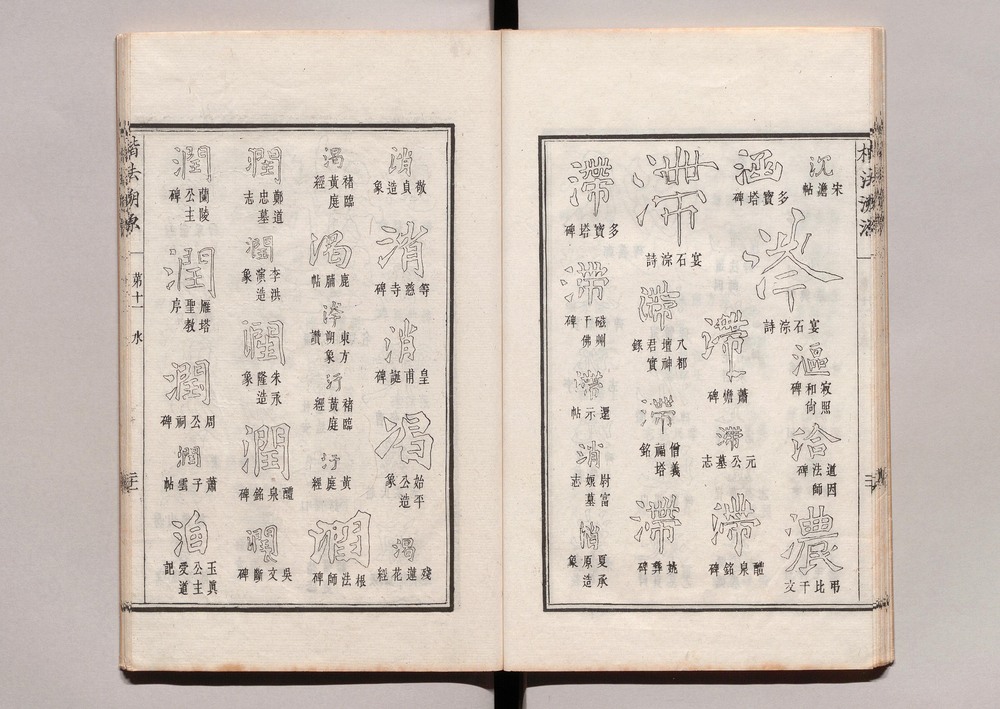 沉
宋儋帖
宴石淙詩
漚
寂照和尚碑
洽
道因法師碑
濃
弔比干文
涵
多寶塔碑
滯
蕭憺碑
滯
元公墓志
滯
醴泉銘碑
滯
宴石淙詩
滯
八都壇神君實錄
滯
僧義福塔銘
滯
姚彝碑
滯
多寶塔碑
滯
磁州千佛碑
滯
還示帖
消
尉富娘墓志
消
夏承原造象
消
檄貞造象
消
等慈寺碑
消
皇甫誕碑
渴
始平公造象
渴
殘蓮花經
渴
褚臨黃庭經
渴
鹿脯帖
東方朔象讚
褚臨黃庭經
黃庭經
潤
根法師碑
潤
鄭道忠墓志
潤
李洪演造象
潤
朱永隆造象
潤
醴泉銘碑
潤
吳文斷碑
潤
蘭陵公主碑
潤
雁塔聖教序
潤
周公祠碑
潤
蕭子雲帖
洎
玉真公主愛道記
楷法溯源
第十一 水